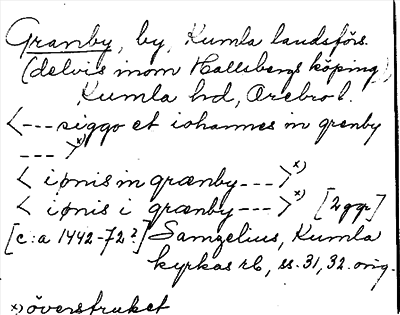 Granby, by, Kumla landsförs.
(delvis inom Hallsbergs köping)
Kumla hd, Örebro l.
<--- siggo et iohannes in grenby
--- >x)
< ipnis in grænby --- >x)
< ipnis i grænby --- >x) [2 ggr]
[c:a 1442-72?] Samzelius, Kumla
kyrkas rb, ss. 31, 32. orig.
x) överstruket